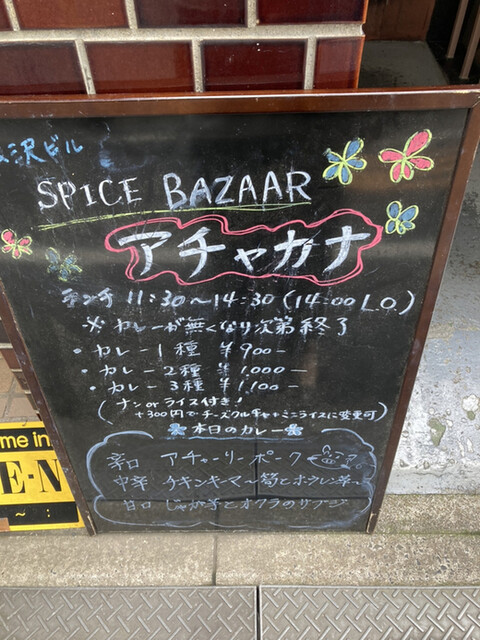 沢ビル
SPICE BAZAAR
アチャカナ
ランチ 11:30〜14:30 (14:00 L.O.)
※ カレーが無くなり次第終了
・カレー1種 ¥900-
・カレー2種 ¥1,000-
・カレー3種 ¥1,100-
(ナン or ライス付き!
+300円でチーズクルチャ・ミニライスに変更可)
本日のカレー
辛口 アチャーリーポーク
中辛 チキンキーマ〜筍とホウレン草〜
甘口 じゃが芋とオクラのサブジ
me in
E-N
~ :